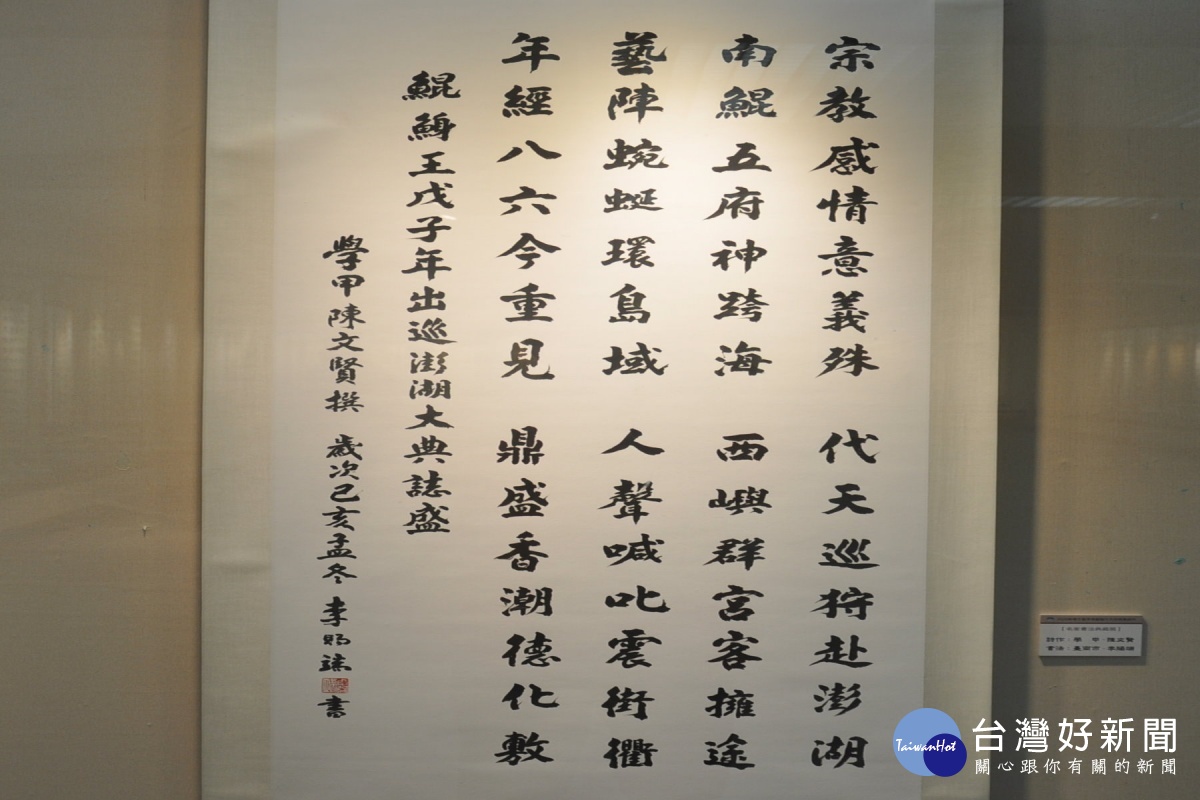 宗教感情意義殊 代天巡狩赴澎湖
南鯤五府神跨海 西嶼群宮客擁途
藝陣蜿蜒環島域 人聲喊叱震街衢
年經八六今重見 鼎盛香潮德化敷
鯤鯓王戊子年出巡澎湖大典誌盛
學甲陳文賢撰 歲次己亥孟冬 李
書
詩作:學 甲.陳文賢
TaiwanHot
台灣好新聞
關心跟你有關的新聞